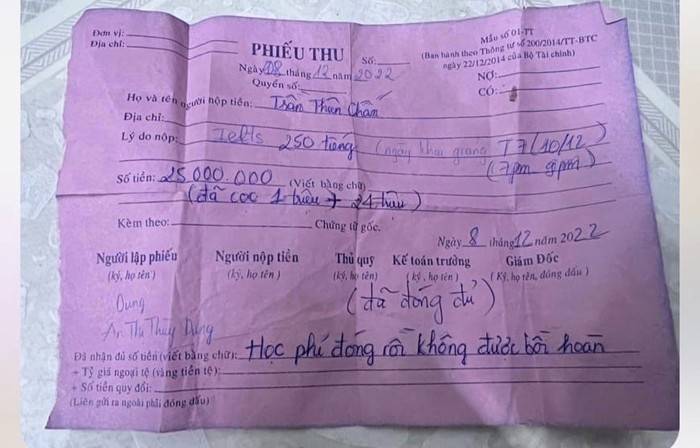 Đơn vị:
Địa chỉ:
PHIẾU THU
Số:
Mẫu số 01-TT
(Ban hành theo Thông tư số 200/2014/TT-BTC
ngày 22/12/2014 của Bộ Tài chính)
Ngày 08 tháng 12 năm 2022
Quyển số:
NỢ:
CÓ:
Họ và tên người nộp tiền: Trần Thiên Chấn
Địa chỉ:
Lý do nộp: Ielts 250 tiếng (ngày khai giảng T7 (10/12)
(7pm 9pm)
Số tiền: 25.000.000 (Viết bằng chữ)
(đã cọc 1 triệu + 24 triệu)
Kèm theo: Chứng từ gốc.
Ngày 8 tháng 12 năm 2022
Người lập phiếu Người nộp tiền Thủ quỹ Kế toán trưởng Giám Đốc
(ký, họ tên) (ký, họ tên) (ký, họ tên) (ký, họ tên) (Ký, họ tên, đóng dấu)
Dung
(đã đóng đủ)
Thùy Dung
Đã nhận đủ số tiền (viết bằng chữ): Học phí đóng rồi không được bồi hoàn
+ Tỷ giá ngoại tệ (vàng tiền tệ):
+ Số tiền quy đổi:
(Liên gửi ra ngoài phải đóng dấu)